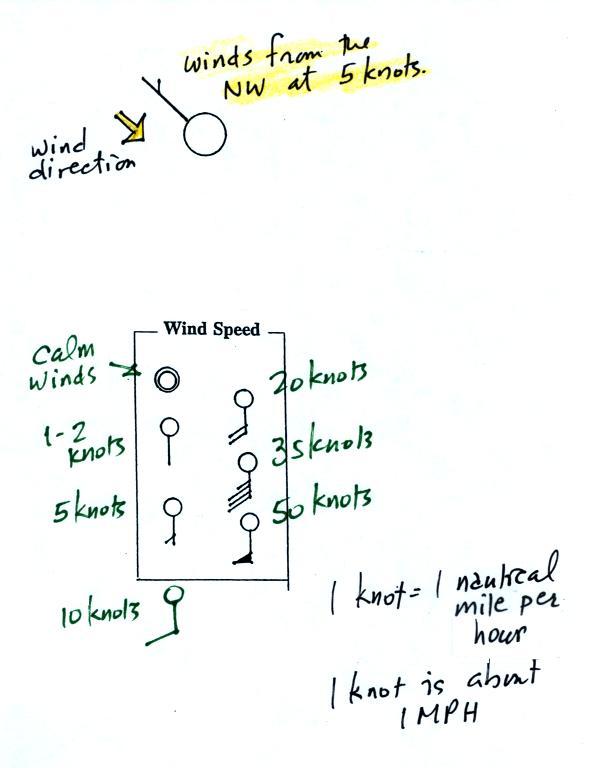 winds from the
NW at 5 knots.
wind
direction
Wind Speed
Calm
winds
20 knots
1-2
knots
35 knots
5 knots
50 knots
10 knots
1 knot = 1 nautical
mile per
hour
1 knot is about
1 MPH